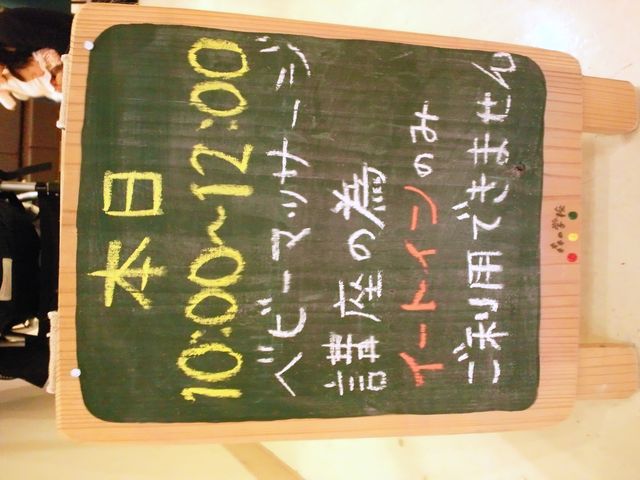 本日
10:00~12:00
ベビーマッサージ
講座の為
イートインのみ
ご利用できません
森の学校